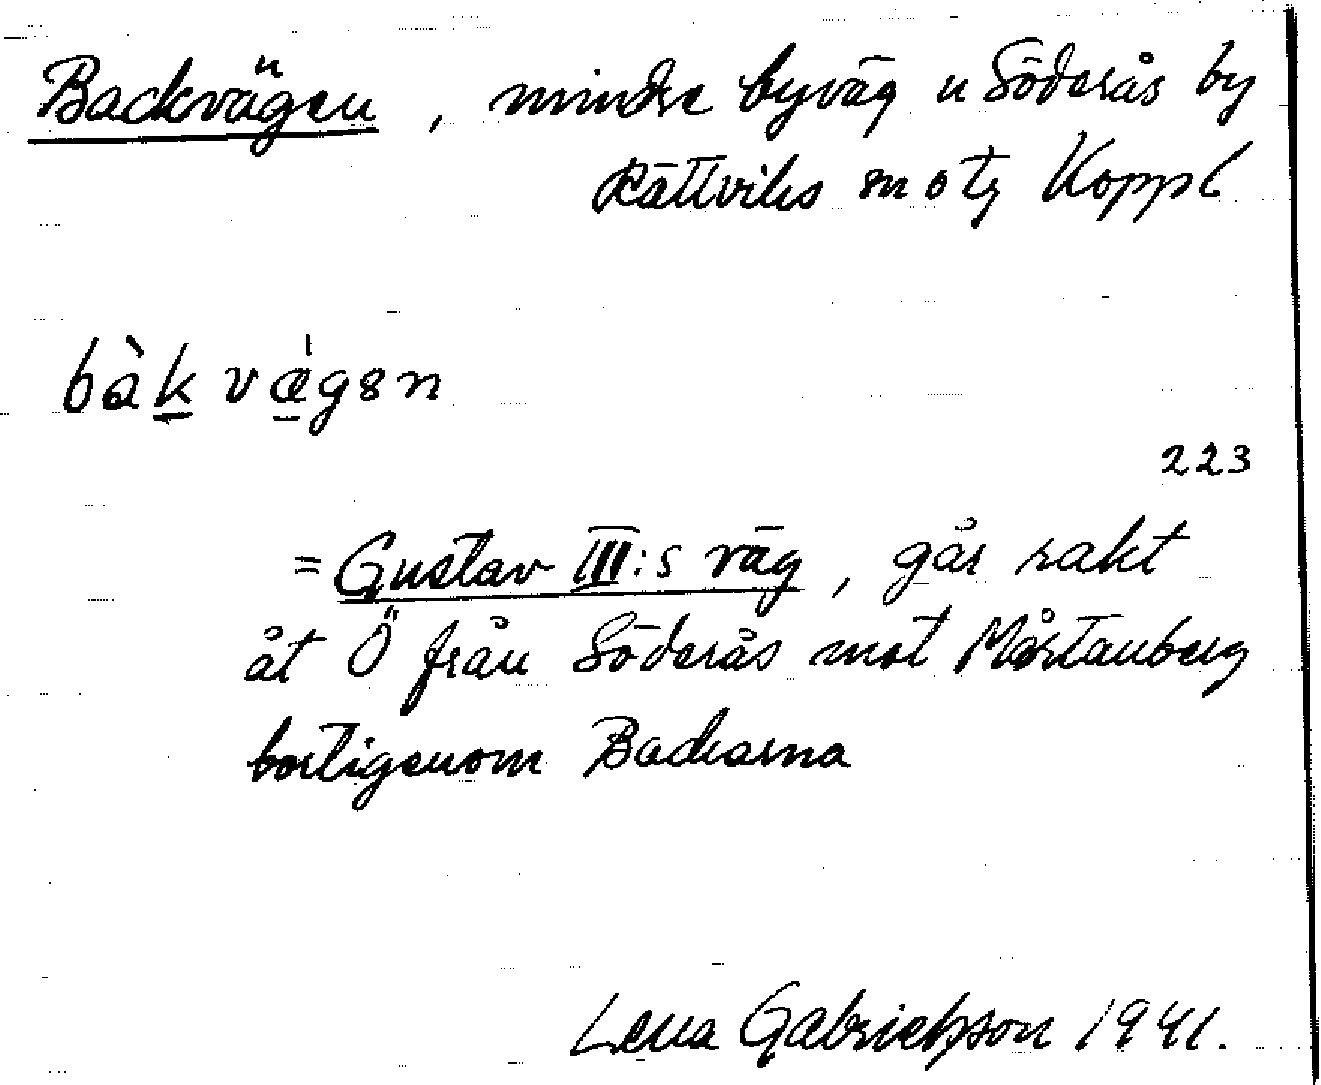 Backvägen, mindre byväg u Söderås by
Rättviks m o tg Koppl
bàk vægən
223
= Gustav III:s väg, går rakt
åt Ö från Söderås mot Mårtanberg
bortigenom Backarna
Lena Gabrielsson 1941.